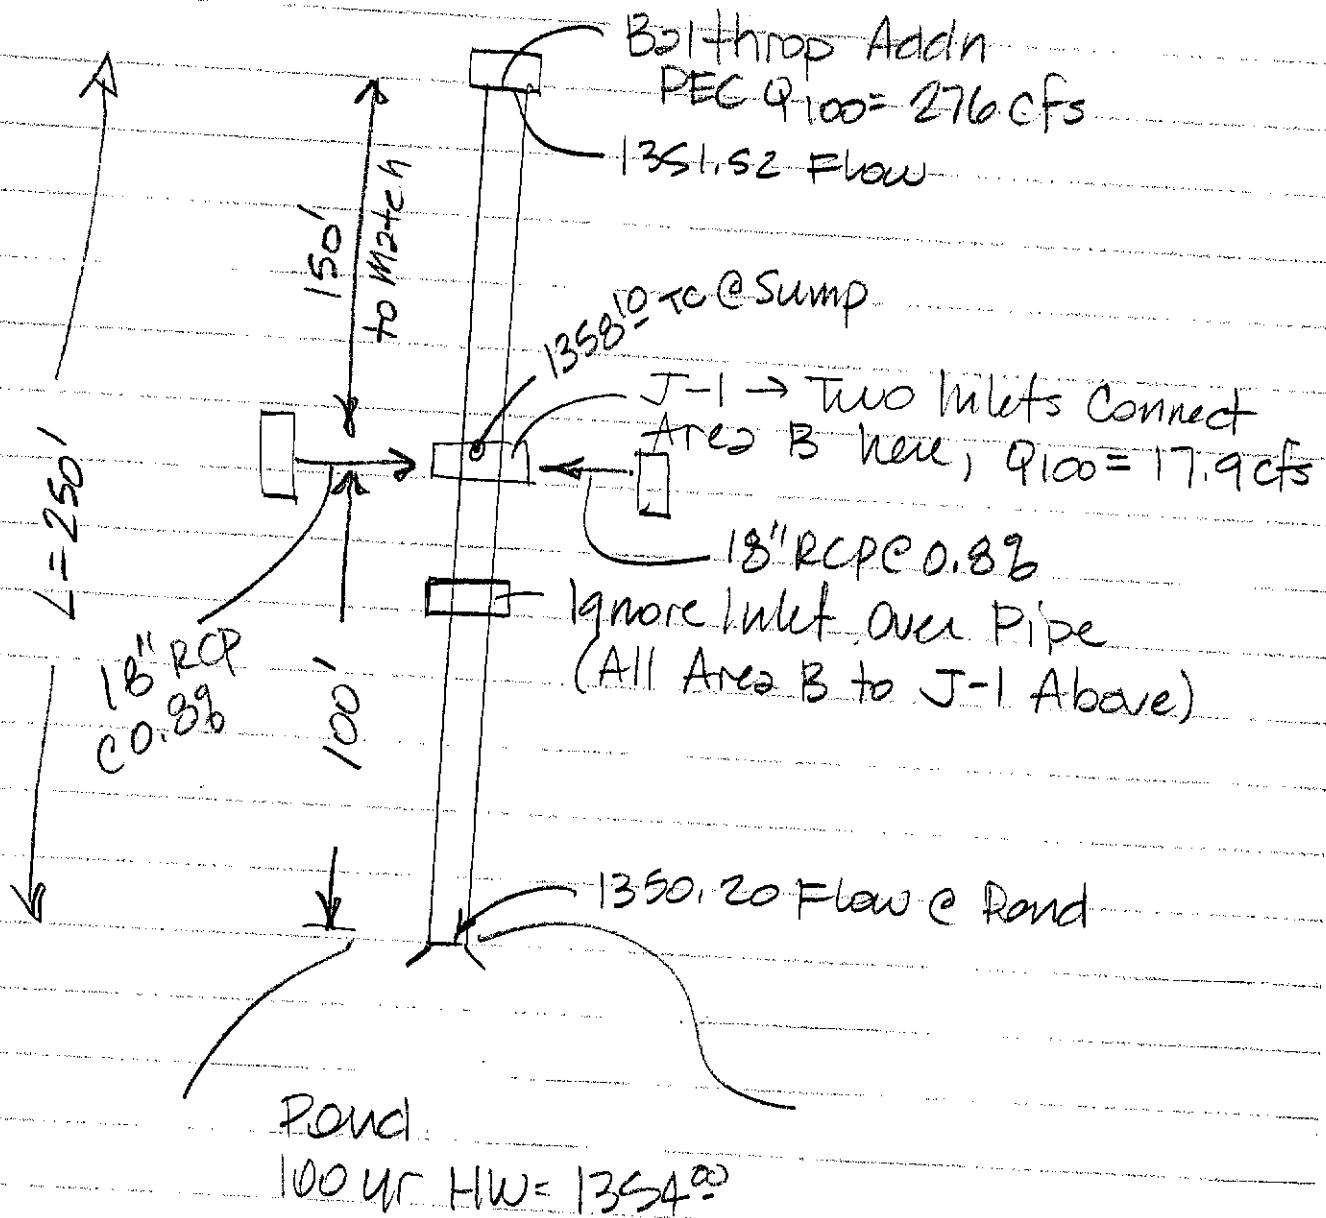 Balthrop Addn
PEC Q100= 276 cfs
1351.52 Flow
150'
to Match
1358 10 TC @ Sump
J-1 → Two Inlets Connect
Area B here, Q100= 17.9 cfs
L=250'
18" RCP @ 0.8%
Ignore Inlet Over Pipe
(All Area B to J-1 Above)
18" RCP
@ 0.8%
100'
1350.20 Flow @ Pond
Pond
100 yr HW= 1354 00